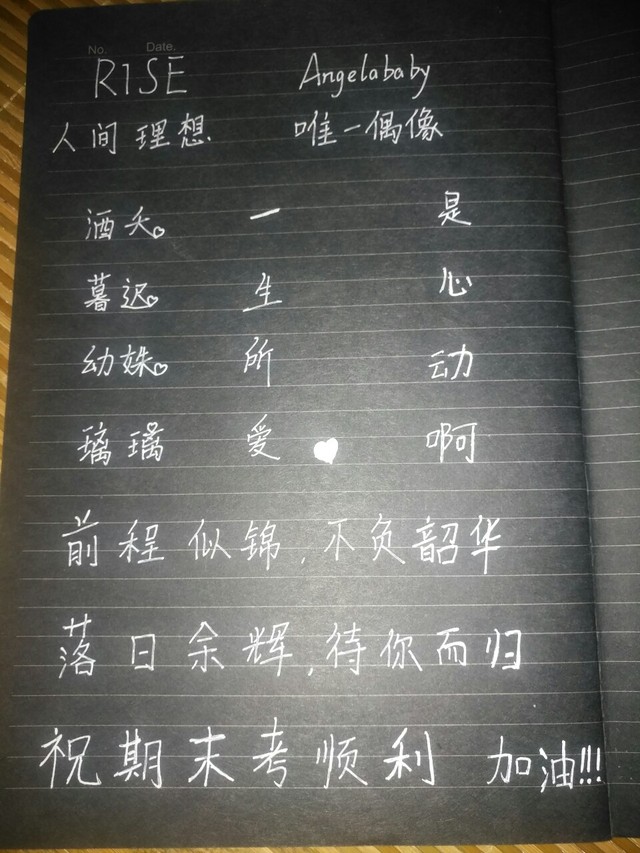 No. Date.
R1SE Angelababy
人间理想 唯一偶像
酒夭 一 是
暮迟 生 心
幼姝 所 动
璃璃 爱 啊
前程似锦,不负韶华
落日余辉,待你而归
祝期末考顺利 加油!!!